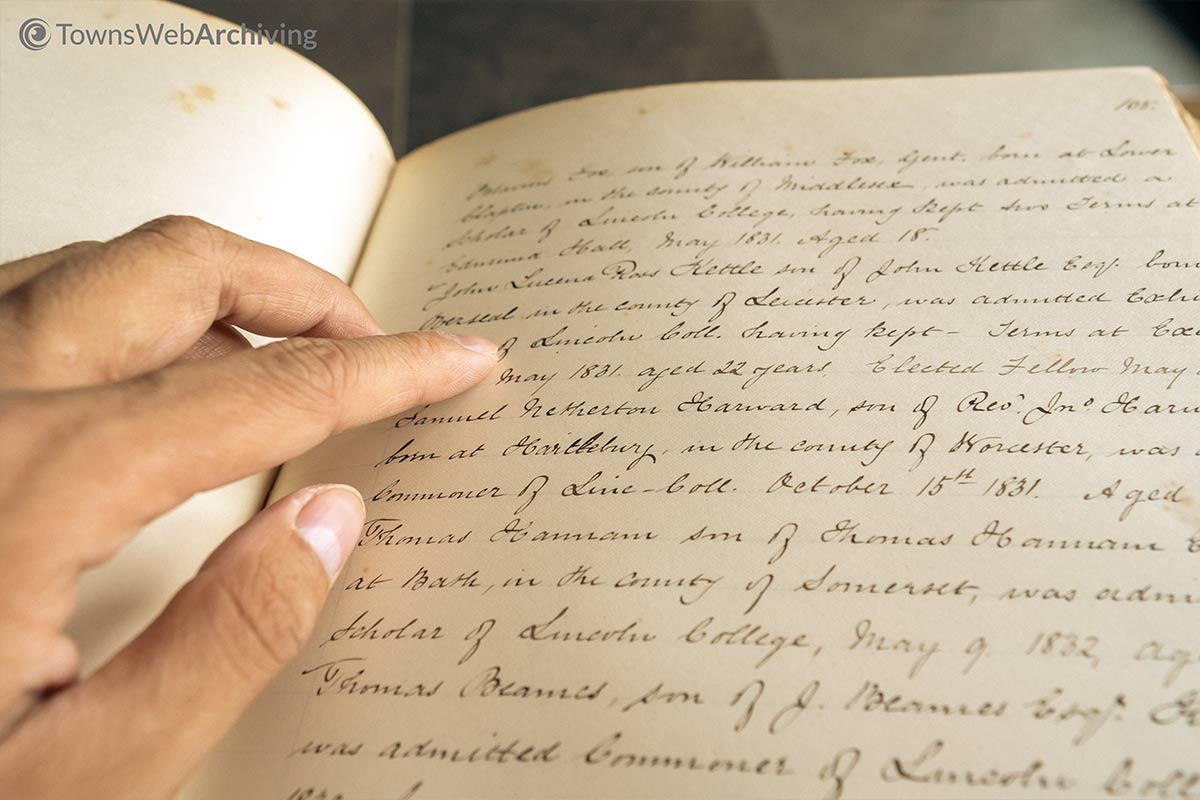 TownsWebArchiving
105.
Fox, son of William Fox, Gent. born at Lower
Clapton, in the county of Middlesex, was admitted a
Scholar of Lincoln College, having kept two Terms at
Edmund Hall, May 1831. Aged 18.
John Lucena Ross Kettle son of John Kettle Esqr. born
Overseal in the county of Leicester, was admitted
of Lincoln Coll. having kept – Terms at
May 1831. aged 22 years. Elected Fellow May
Samuel Netherton Harward, son of Revd. Jno. Harw
born at Hartlebury, in the county of Worcester, was
Commoner of Linc–Coll. October 15th 1831. Aged
Thomas Hannam son of Thomas Hannam
at Bath, in the county of Somerset, was adm
Scholar of Lincoln College, May 9. 1832, ag
Thomas Beames, son of J. Beames Esqr.
was admitted Commoner of Lincoln Coll